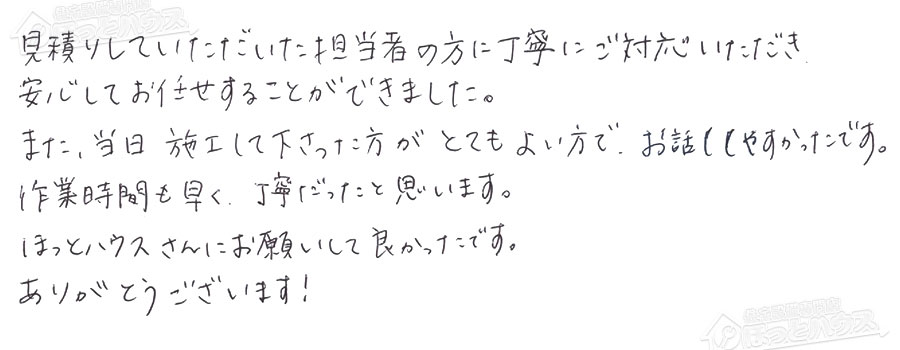 見積りしていただいた担当者の方に丁寧にご対応いただき、
安心してお任せすることができました。
また、当日 施工して下さった方が とてもよい方で、お話ししやすかったです。
作業時間も早く、丁寧だったと思います。
ほっとハウスさんにお願いして良かったです。
ありがとうございます!
住宅設備専門店
ほっとハウス
住宅設備専門店
ほっとハウス